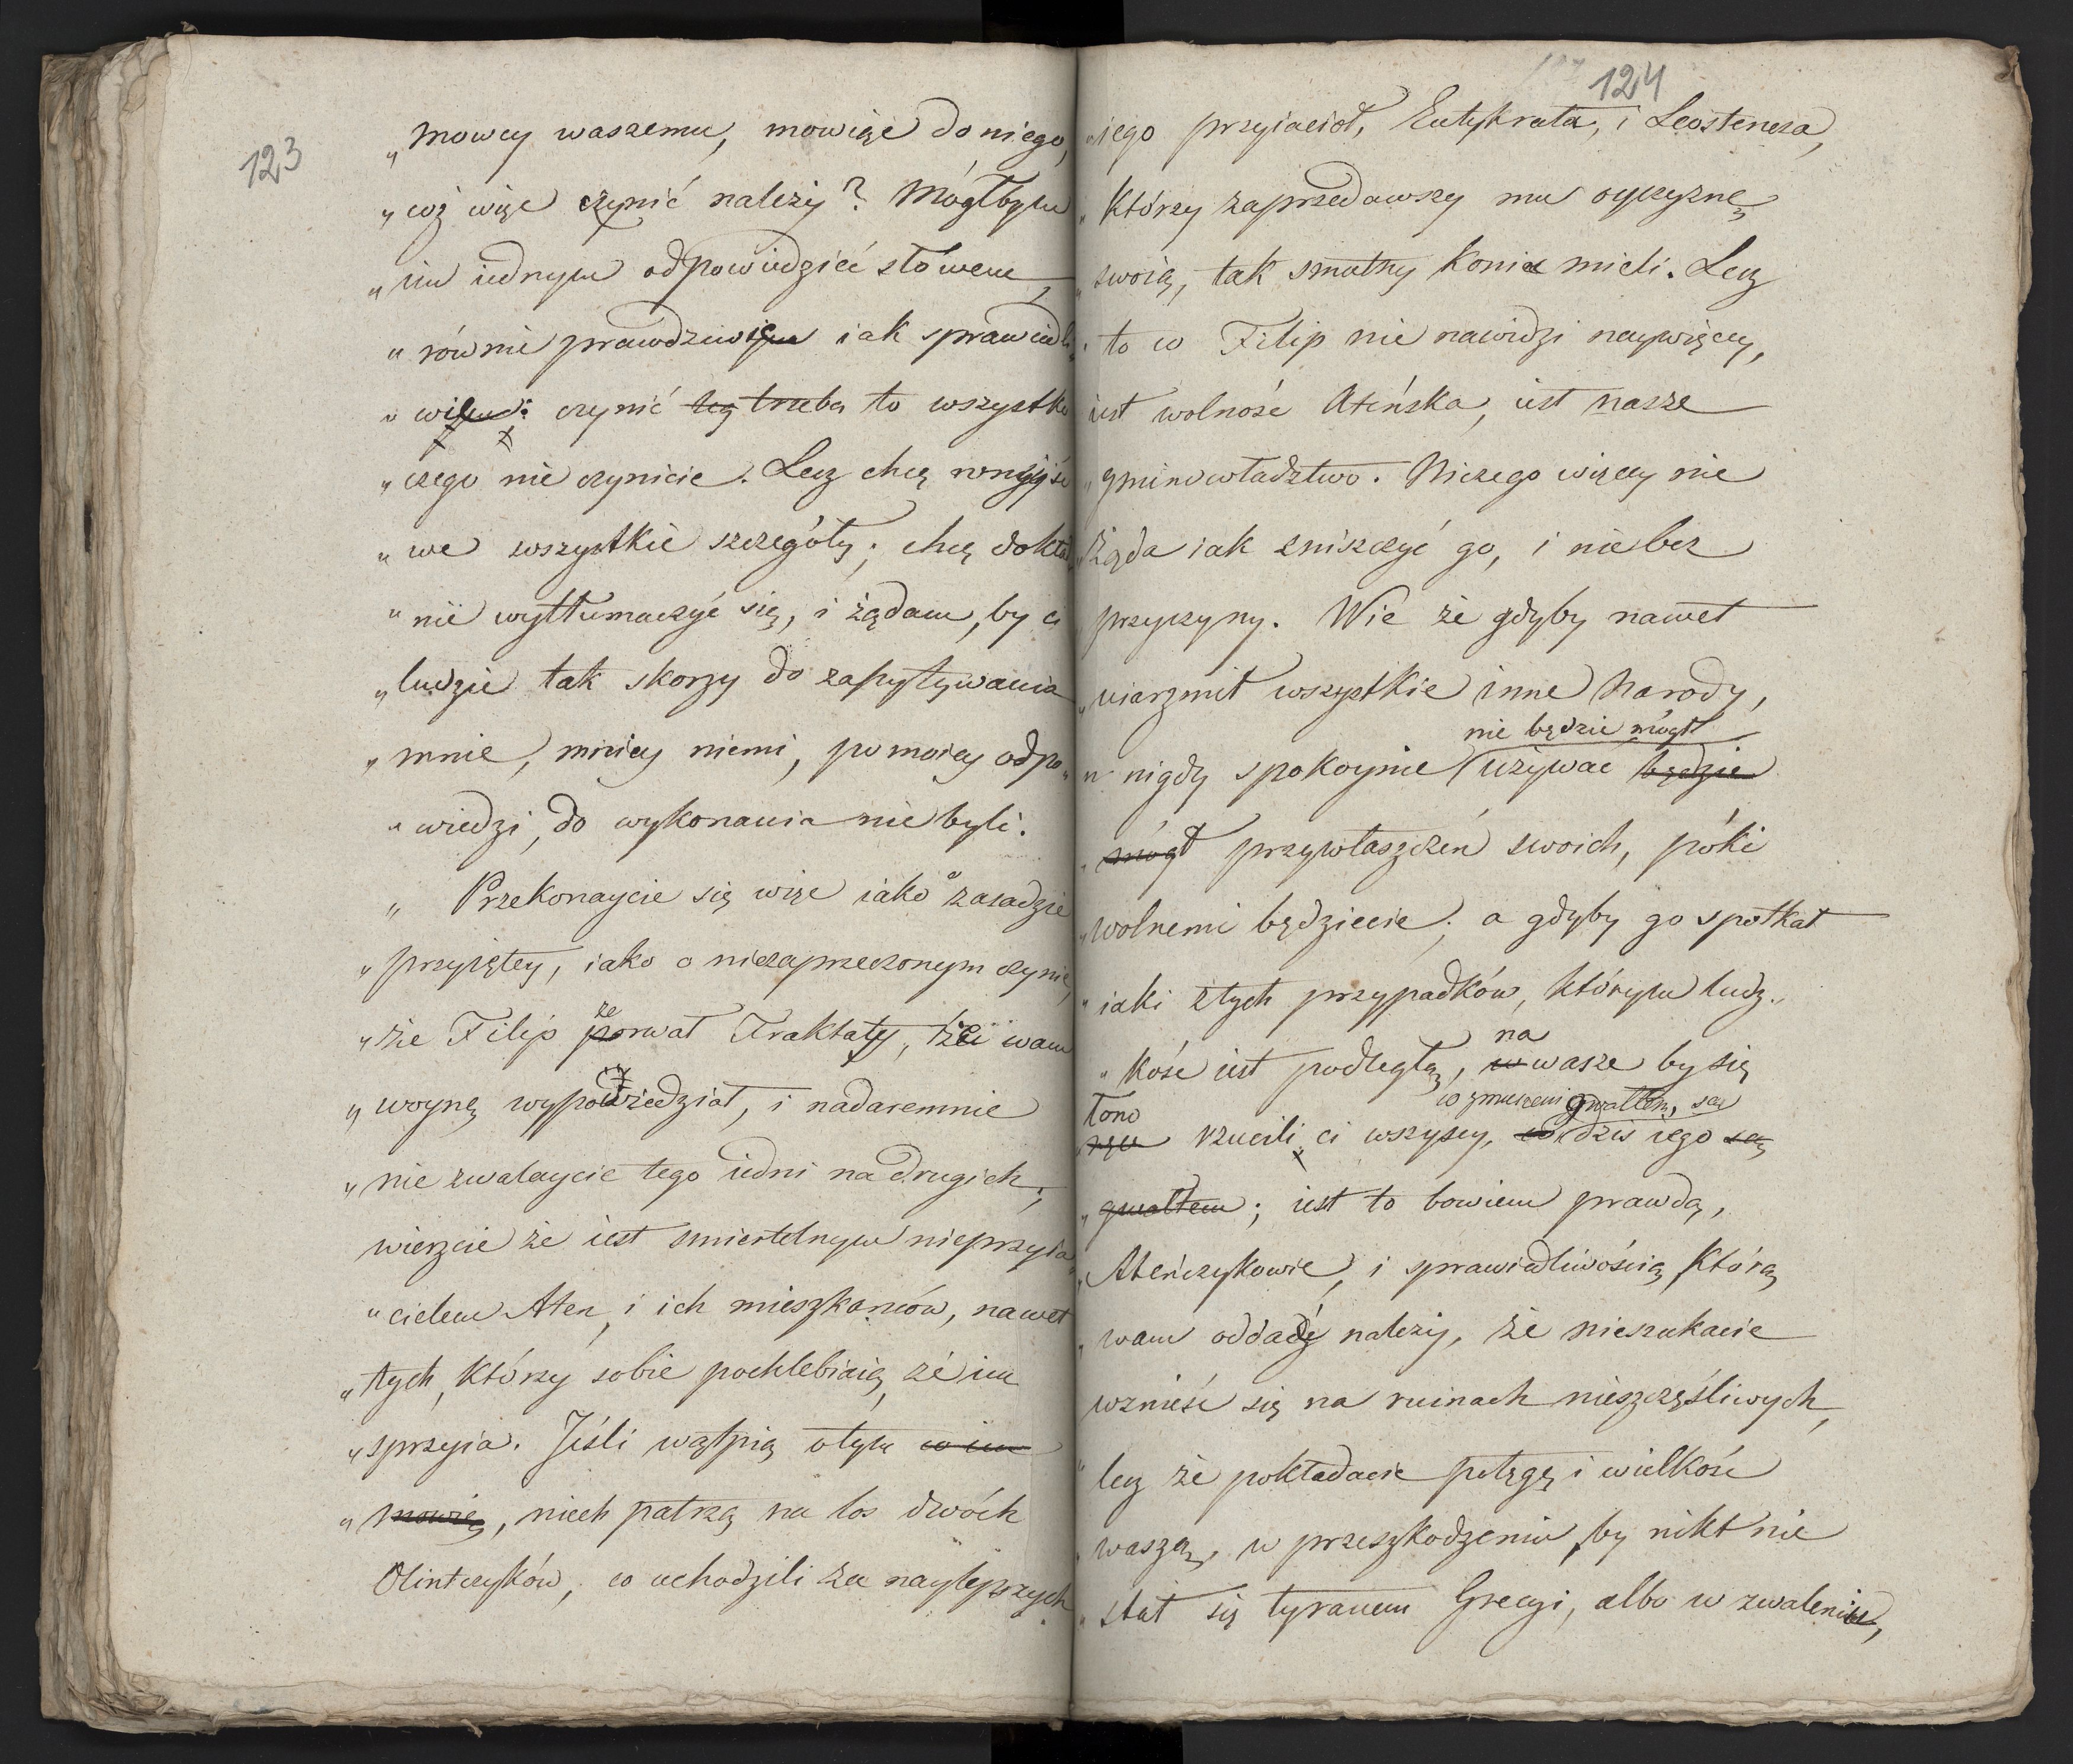 123
„ mowcy waszemu, mowiąc do niego,
„ coż więc czynić należy? Mógłbym
„ im iednym odpowiedzieć słowem,
„ równie prawdziwiem iak sprawiedli„
„ wilem: czynić teg trzeba to wszystko
„ czego nie czynicie. Lecz chcę roneyść
„ we wszystkie szczegóły; chcę dokład„
„ nie wytłumaczyć się, i żądam, by ci
„ ludzie tak skorzy do zapytywania
„ mnie, mniey niemi, po moiey odpo„
„ wiedzi, do wykonania nie byli.
„ Przekonaycie się więc iako o zasadzie
„ przyiętey, iako o niezaprzeczonym czynie,
„ że Filip zerwał Traktaty, że wam
„ woynę wypowiedział, i nadaremnie
„ nie zwalaycie tego iedni na drugich;
wierzcie że iest smiertelnym nieprzyia„
„ cielem Aten, i ich mieszkańców, nawet
„ tych, którzy sobie pochlebiaią, że im
„ sprzyia. Jeśli wątpią otym co im
„ mowię, niech patrzą na los dwóch
Olintczyków, co uchodzili za naylepszych
124
„ iego przyiacioł, Eutykrata, i Leostenesa,
„ którzy zaprzedawszy mu oyczyznę
„ swoią, tak smutny koniec mieli. Lecz
„ to co Filip nie nawidzi naywięcey,
iest wolność Ateńska, iest nasze
„ gminowładztwo. Niczego więcey nie
„ żąda iak zniszczyć go, i nie bez
przyczyny. Wie że gdyby nawet
„ uiarzmił wszystkie inne Narody,
nie będzie mógł
„ nigdy spokoynie używać będzie
„ mógł przywłaszczeń swoich, póki
„ wolnemi będziecie; a gdyby go spotkał
„ iaki z tych przypadków, którym ludz„
na
„ kość iest podległą, w wasze by się
łono co zmuszeni gwałtem, są
ręce rzucili ci wszyscy, co dziś iego są
„ gwałtem; iest to bowiem prawdą,
„ Ateńczykowie, i sprawiedliwością, którą
„ wam oddadź należy, że nieszukacie
wznieść się na ruinach nieszczęśliwych,
„ lecz że pokładacie potęgę i wielkość
„ waszą, w przeszkodzeniu, by nikt nie
„ stał się tyranem Grecyi, albo w zwaleniu,